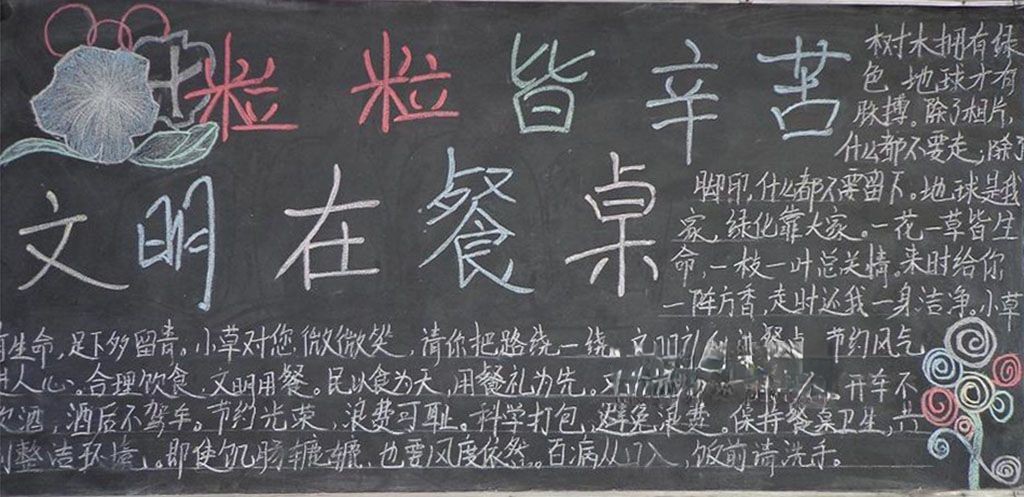 粒粒皆辛苦
文明在餐桌
树木拥有绿
色 地球才有
脉搏。除了相片,
什么都不要走,除了
脚印,什么都不要留下。地球是我
家,绿化靠大家。一花一草皆生
命,一枝一叶总关情。来时给你
一阵方香,走时还我一身洁净。小草
有生命,足下多留青。小草对您微微笑,请你把路绕一绕 文明 餐桌 节约风气
进人心。合理饮食,文明用餐。民以食为天,用餐礼为先。 开车不
饮酒,酒后不驾车。节约光荣,浪费可耻。科学打包,避免浪费。保持餐桌卫生,共
创整洁环境。即使饥肠辘辘,也要风度依然。百病从口入,饭前请洗手。